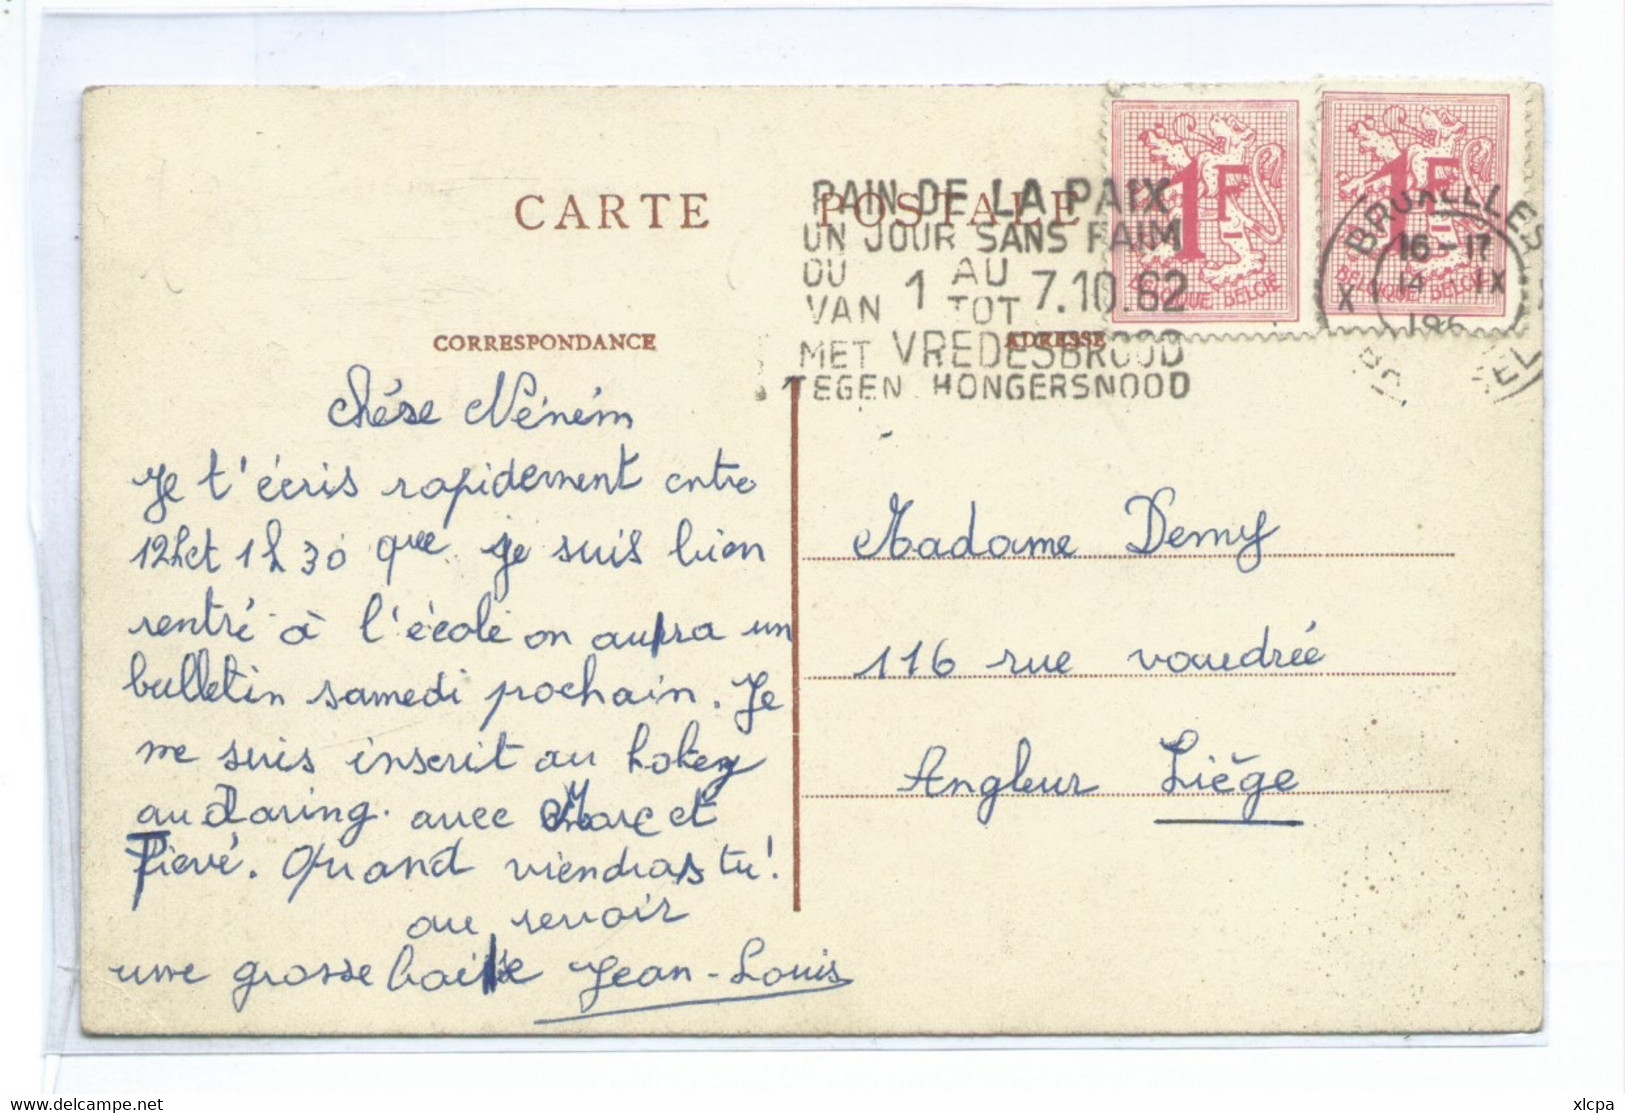 CARTE POSTALE
PAIN DE LA PAIX
UN JOUR SANS FAIM
DU 1 AU 7.10.62
VAN TOT
MET VREDESBROOD
TEGEN HONGERSNOOD
1F
BELGIQUE BELGIË
1F
BELGIQUE BELGIË
BRUXELLES X
16-17
14 IX
196
CORRESPONDANCE
ADRESSE
Chére Néném
Je t'écris rapidement entre
12h et 1h30 que je suis bien
rentré à l'école on aura un
bulletin samedi prochain. Je
me suis inscrit au hokey
au Daring. avec Marc et
Pieré. Quand viendras tu!
au revoir
une grosse baise Jean-Louis
Madame Demy
116 rue vaudrée
Angleur Liège
delcampe.net
xlcpa